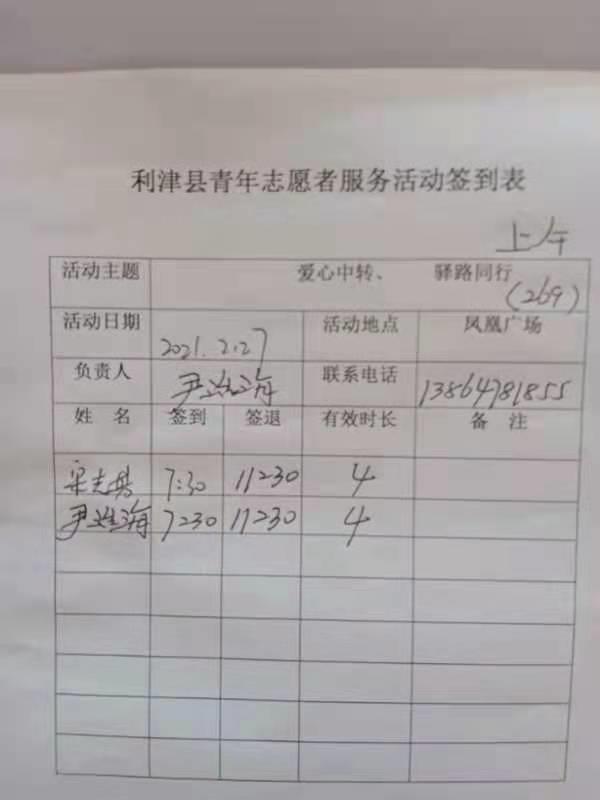 利津县青年志愿者服务活动签到表
上午
活动主题 爱心中转、 驿路同行
(269)
活动日期 2021.2.27 活动地点 凤凰广场
负责人 尹海 联系电话 13864781855
姓 名 签到 签退 有效时长 备 注
宋志 7:30 11:30 4
尹海 7:30 11:30 4